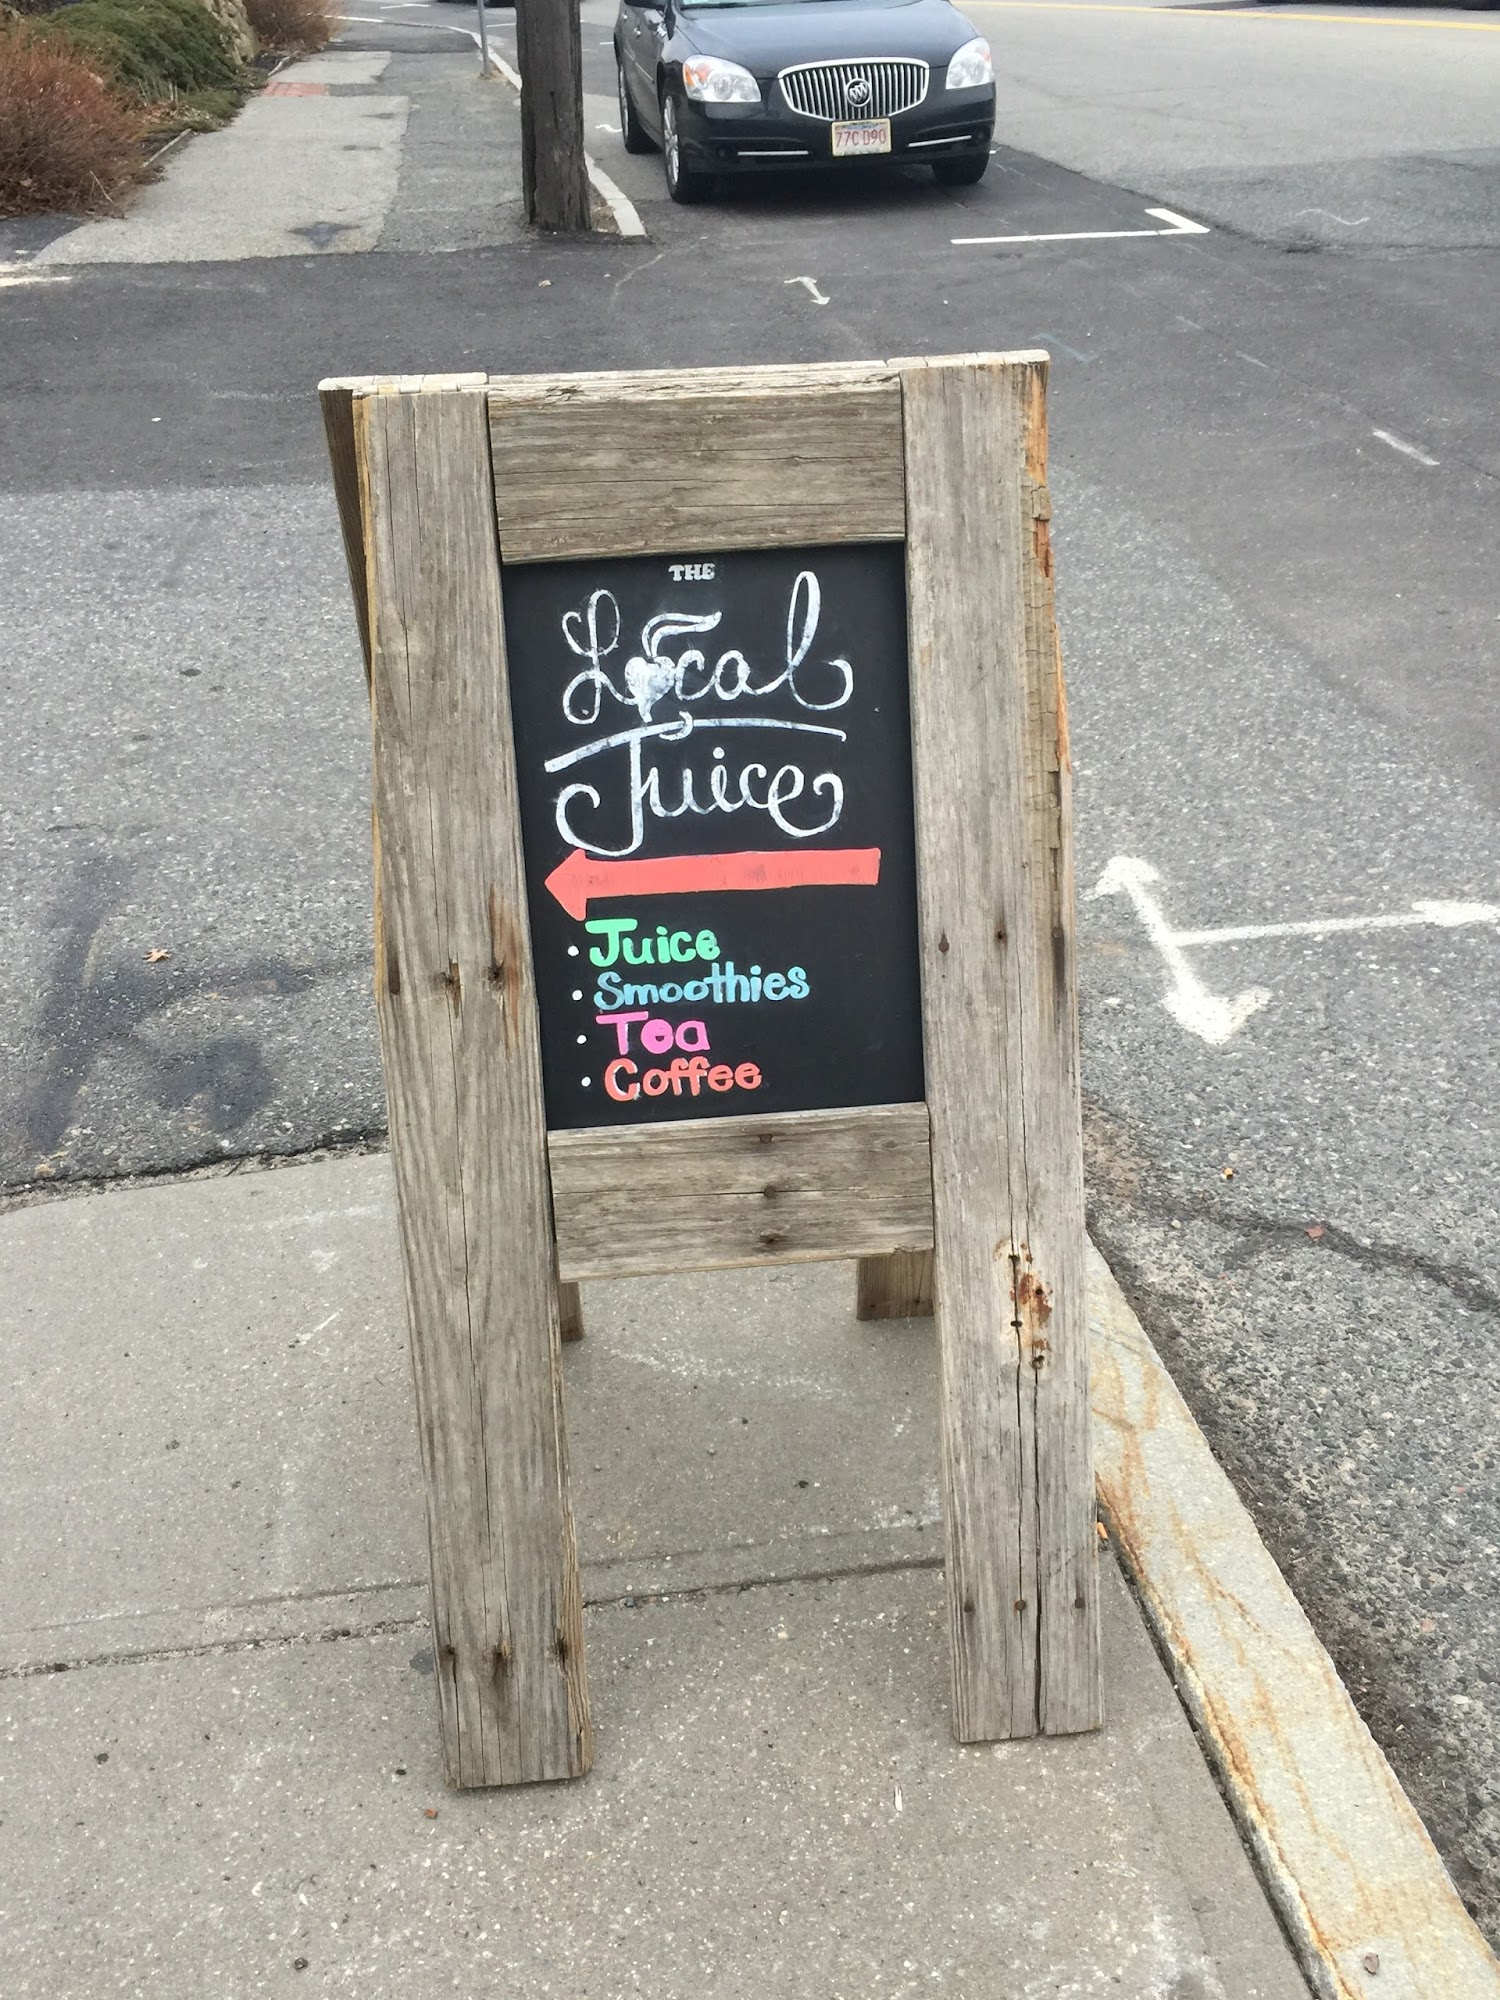 77C D90
THE
Local
Juice
• Juice
• Smoothies
• Tea
• Coffee